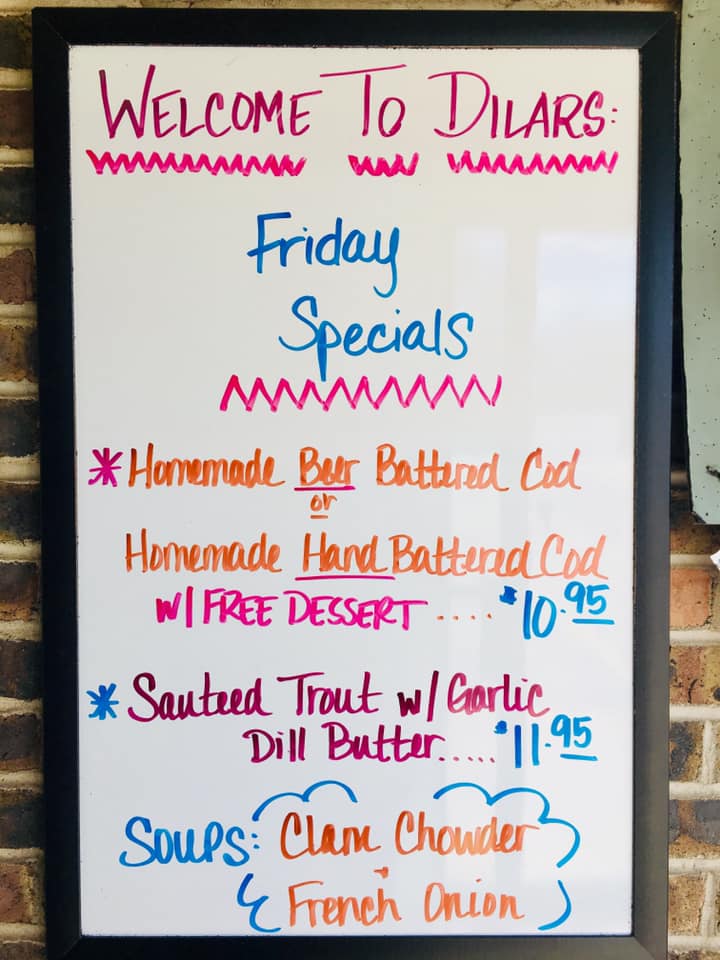 WELCOME TO DILARS:
Friday
Specials
* Homemade Beer Battered Cod
or
Homemade Hand Battered Cod
W/ FREE DESSERT .... $10.95
* Sauteed Trout w/ Garlic
Dill Butter..... $11.95
SOUPS: Clam Chowder
French Onion